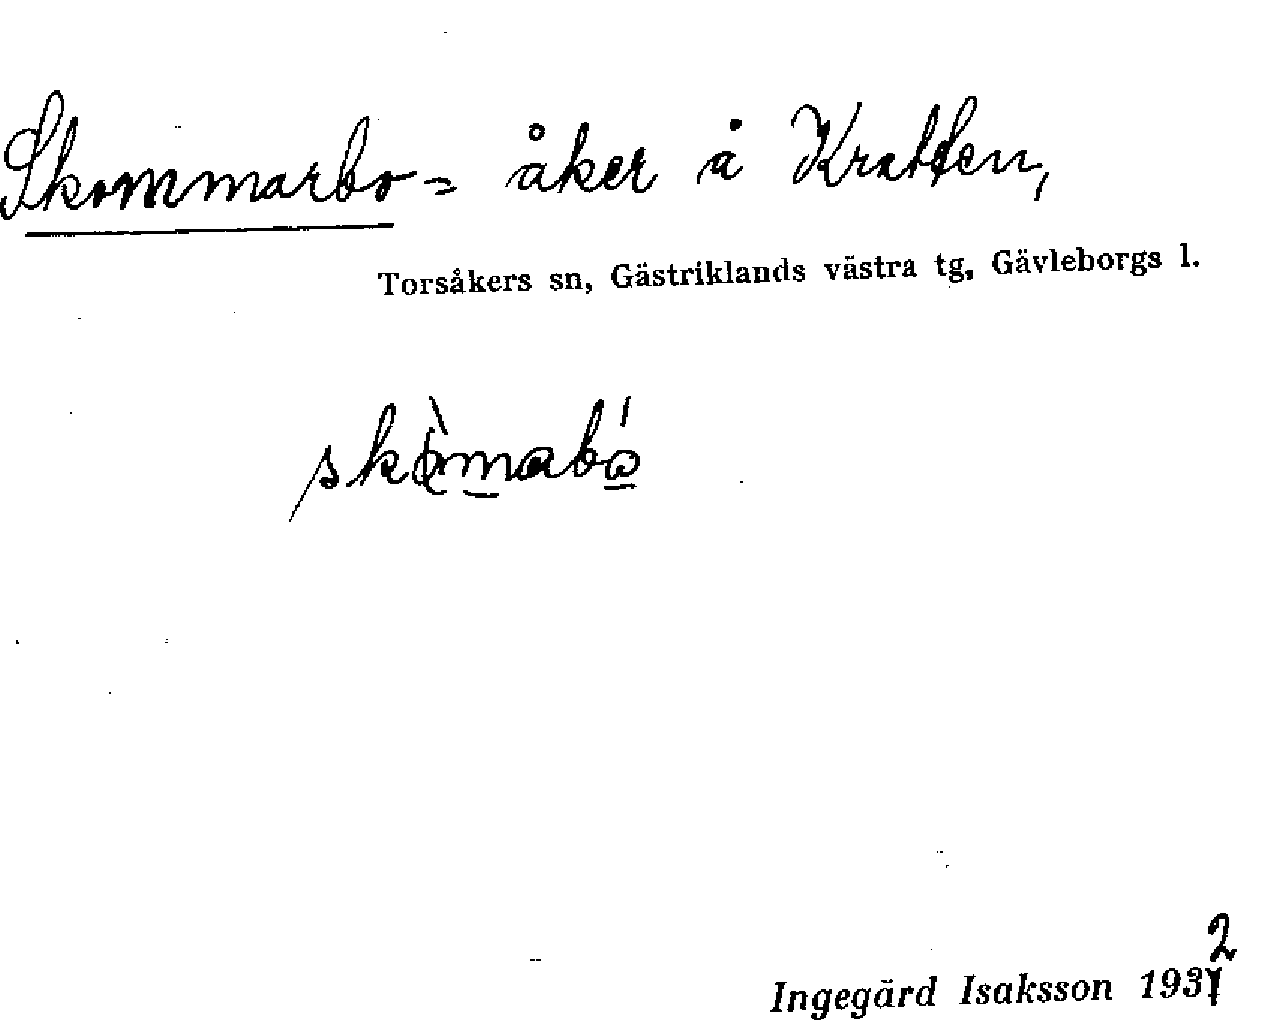 Skommarbo = åker å Kratten,
Torsåkers sn, Gästriklands västra tg, Gävleborgs l.
skòmabó
Ingegärd Isaksson 1932